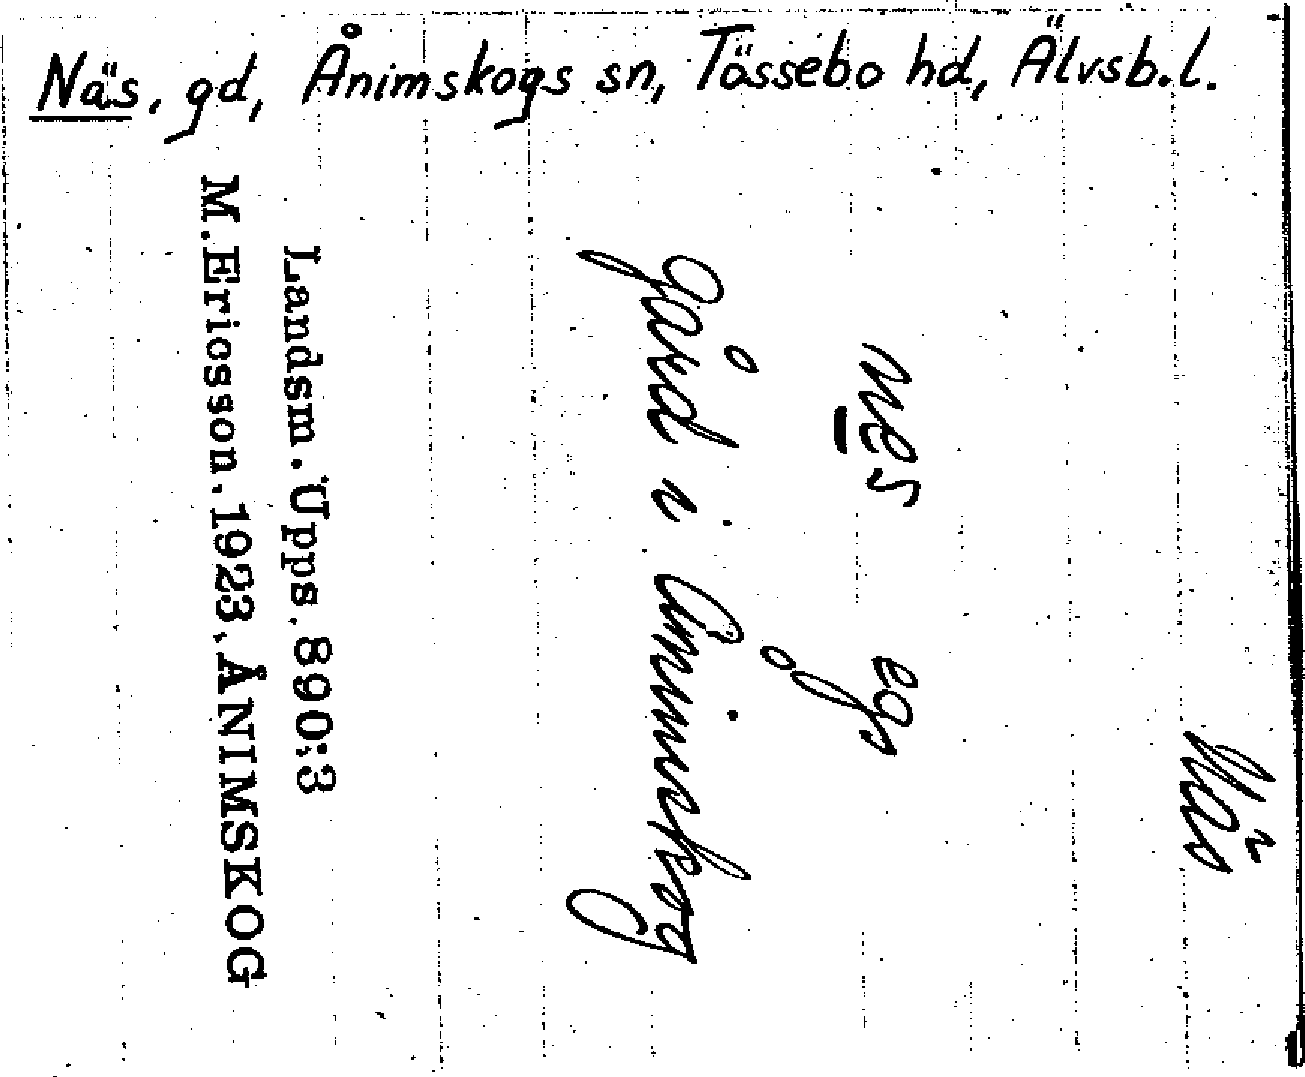 Näs, gd, Ånimskogs sn, Tössebo hd, Älvsb.l.
Näs
nes ego
gård i Ånimskog
Landsm. Upps. 890:3
M. Ericsson. 1923. ÅNIMSKOG